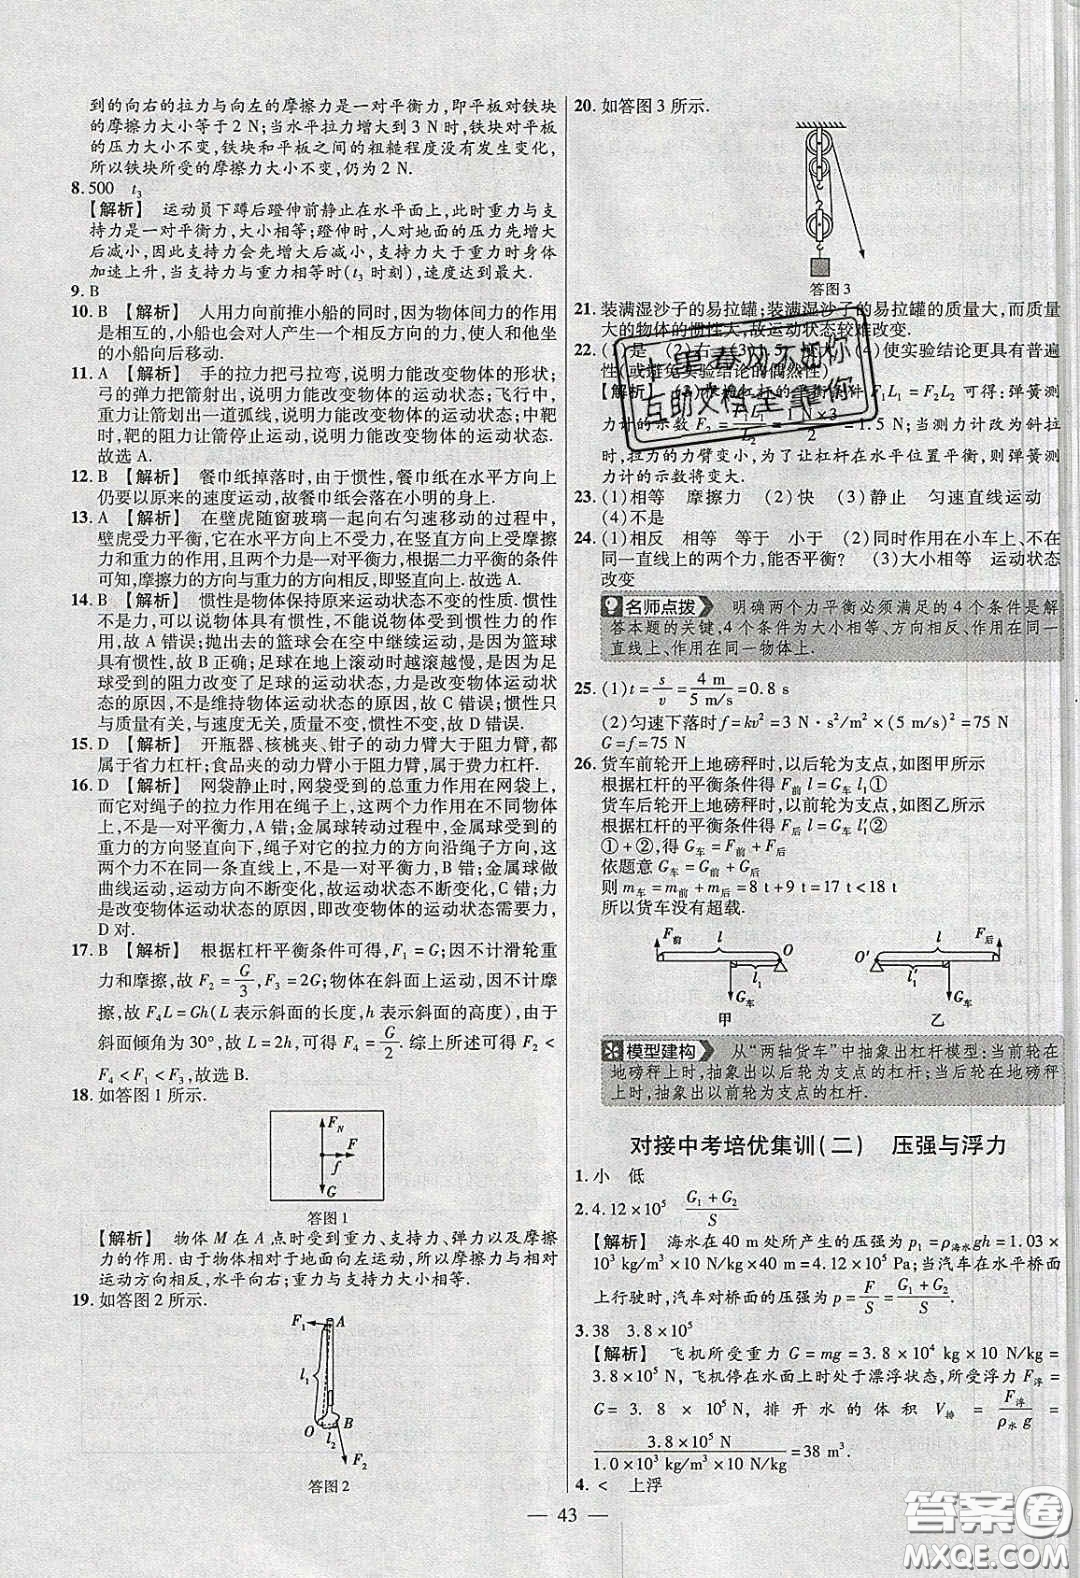 到的向右的拉力与向左的摩擦力是一对平衡力,即平板对铁块
的摩擦力大小等于2 N;当水平拉力增大到3 N时,铁块对平板
的压力大小不变,铁块和平板之间的粗糙程度没有发生变化,
所以铁块所受的摩擦力大小不变,仍为2 N.
8. 500 t₃
【解析】 运动员下蹲后蹬伸前静止在水平面上,此时重力与支
持力是一对平衡力,大小相等;蹬伸时,人对地面的压力先增大
后减小,因此支持力会先增大后减小,支持力大于重力时身体
加速上升,当支持力与重力相等时(t₃时刻),速度达到最大.
9. B
10. B 【解析】 人用力向前推小船的同时,因为物体间力的作用
是相互的,小船也会对人产生一个相反方向的力,使人和他坐
的小船向后移动.
11. A 【解析】 手的拉力把弓拉弯,说明力能改变物体的形状;
弓的弹力把箭射出,说明力能改变物体的运动状态;飞行中,
重力使箭划出一道弧线,说明力能改变物体的运动状态;中靶
时,靶的阻力让箭停止运动,说明力能改变物体的运动状态.
故选A.
12. B 【解析】 餐巾纸掉落时,由于惯性,餐巾纸在水平方向上
仍要以原来的速度运动,故餐巾纸会落在小明的身上.
13. A 【解析】 在壁虎随窗玻璃一起向右匀速移动的过程中,
壁虎受力平衡,它在水平方向上不受力,在竖直方向上受摩擦
力和重力的作用,且两个力是一对平衡力,根据二力平衡的条件
可知,摩擦力的方向与重力的方向相反,即竖直向上.故选A.
14. B 【解析】 惯性是物体保持原来运动状态不变的性质.惯性
不是力,可以说物体具有惯性,不能说物体受到惯性的作用,
故A错误;抛出去的篮球会在空中继续运动,是因为篮球
具有惯性,故B正确;足球在地上滚动时越滚越慢,是因为
足球受到的阻力改变了足球的运动状态,力是改变物体运动状态
的原因,不是维持物体运动状态的原因,故C错误;惯性只
与质量有关,与速度无关,质量不变,惯性不变,故D错误.
15. D 【解析】 开瓶器、核桃夹、钳子的动力臂大于阻力臂,都
属于省力杠杆;食品夹的动力臂小于阻力臂,属于费力杠杆.
16. D 【解析】 网袋静止时,网袋受的总重力作用在网袋上,
而它对绳子的拉力作用在绳子上,这两个力作用在不同物体
上,不是一对平衡力,A错;金属球转动过程中,金属球受到的
重力的方向竖直向下,绳子对它的拉力的方向沿绳子方向,这
两个力不在同一条直线上,不是一对平衡力,B错;金属球做
曲线运动,运动方向不断变化,故运动状态不断变化,C错;力
是改变物体运动状态的原因,即改变物体的运动状态需要力,
D对.
17. B 【解析】 根据杠杆平衡条件可得,F₁=G;因不计滑轮重
力和摩擦,故F₂=G/3,F₃=2G;物体在斜面上运动,因不计摩
擦,故F₄L=Gh(L表示斜面的长度,h表示斜面的高度),由于
斜面倾角为30°,故L=2h,可得F₄=G/2.综上所述可得F₂<
F₄<F₁<F₃,故选B.
18. 如答图1所示.
F_N
F
f
G
答图1
【解析】 物体M在A点时受到重力、支持力、弹力以及摩擦
力的作用.由于物体相对于地面向左运动,所以摩擦力与相对
运动方向相反,水平向右;重力与支持力大小相等.
19. 如答图2所示.
F₁
A
l₁
O
B
l₂
F₂
答图2
20. 如答图3所示.
答图3
21. 装满湿沙子的易拉罐;装满湿沙子的易拉罐的质量大,而质量
大的物体的惯性大,故运动状态较难改变.
22. (1)是 (2)右 (3)1.5 变大 (4)使实验结论更具有普遍
性(或避免实验结论的偶然性)
【解析】 (3)根据杠杆的平衡条件F₁L₁=F₂L₂可得:弹簧测
力计的示数F₂=F₁L₁/L₂=1 N×3/2=1.5 N;当测力计改为斜拉
时,拉力的力臂变小,为了让杠杆在水平位置平衡,则弹簧测
力计的示数将变大.
23. (1)相等 摩擦力 (2)快 (3)静止 匀速直线运动
(4)不是
24. (1)相反 相等 等于 小于 (2)同时作用在小车上、不在
同一直线上的两个力,能否平衡? (3)大小相等 运动状态
改变
名师点拨 明确两个力平衡必须满足的4个条件是解
答本题的关键,4个条件为大小相等、方向相反、作用在同一
直线上、作用在同一物体上.
25. (1)t=s/v=4 m/5 m/s=0.8 s
(2)匀速下落时f=kv²=3 N·s²/m²×(5 m/s)²=75 N
G=f=75 N
26. 货车前轮开上地磅秤时,以后轮为支点,如图甲所示
根据杠杆的平衡条件得F前 l=G车 l₁①
货车后轮开上地磅秤时,以前轮为支点,如图乙所示
根据杠杆的平衡条件得F后 l=G车 l₁′②
①+②,得G车=F前+F后
依题意G车=G前+G后
则m车=m前+m后=8 t+9 t=17 t<18 t
所以货车没有超载.
F前
l
O
l₁
G车
甲
O′
l
F后
l₁′
G车
乙
模型建构 从“两轴货车”中抽象出杠杆模型:当前轮在
地磅秤上时,抽象出以后轮为支点的杠杆;当后轮在地磅秤
上时,抽象出以前轮为支点的杠杆.
对接中考培优集训(二) 压强与浮力
1. 小 低
2. 4.12×10⁵ (G₁+G₂)/S
【解析】 海水在40 m处所产生的压强为p₁=ρ海水gh=1.03×
10³ kg/m³×10 N/kg×40 m=4.12×10⁵ Pa;当汽车在水平桥面
上行驶时,汽车对桥面的压强为p=F/S=(G₁+G₂)/S.
3. 38 3.8×10⁵
【解析】 飞机所受重力G=mg=3.8×10⁴ kg×10 N/kg=
3.8×10⁵ N,飞机停在水面上时处于漂浮状态,所受浮力F浮=
G=3.8×10⁵ N,排开水的体积V排=F浮/ρ水g=
3.8×10⁵ N/1.0×10³ kg/m³×10 N/kg=38 m³.
4. < 上浮
43
十里春风不如你
互助文档全靠你
答案圈
MXQE.COM